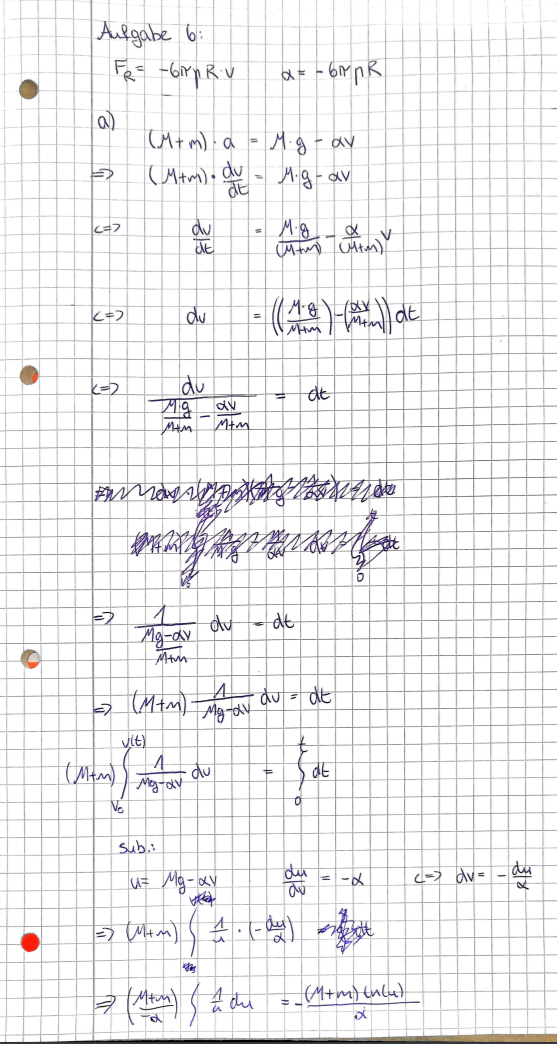 Aufgabe 6:
F_R = -6πηR·v α = -6πηR
a)
(M+m)·a = M·g - αv
=> (M+m)·dv/dt = M·g - αv
<=> dv/dt = M·g/(M+m) - α/(M+m) v
<=> dv = ((M·g/M+m) - (αv/M+m)) dt
<=> dv/(M·g/M+m - αv/M+m) = dt
=> 1/(Mg-αv/M+m) dv = dt
=> (M+m) 1/Mg-αv dv = dt
(M+m) ∫_{v_0}^{v(t)} 1/Mg-αv dv = ∫_0^t dt
sub.:
u = Mg-αv du/dv = -α <=> dv = -du/α
=> (M+m) ∫ 1/u · (-du/α)
=> (M+m/-α) ∫ 1/u du = -(M+m) ln(u)/α